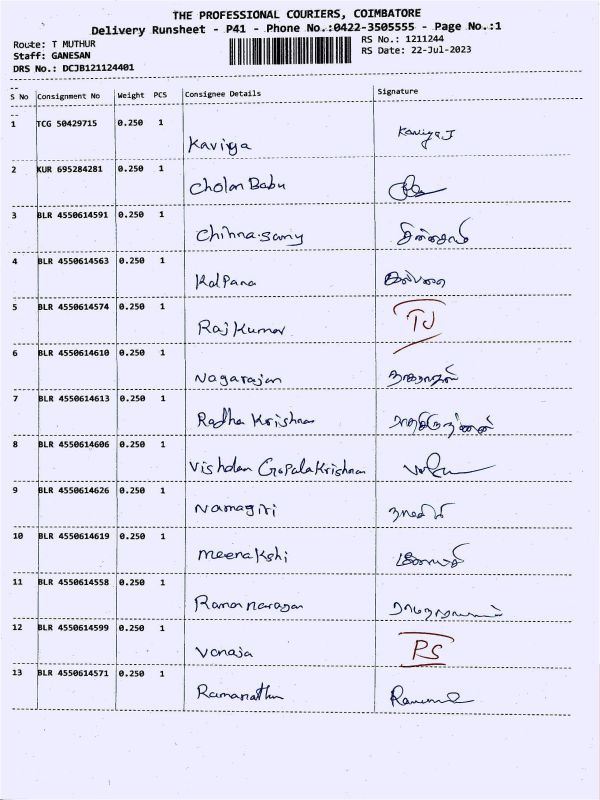 THE PROFESSIONAL COURIERS, COIMBATORE
Delivery Runsheet - P41 - Phone No.:0422-3505555 - Page No.:1
Route: T MUTHUR RS No.: 1211244
Staff: GANESAN RS Date: 22-Jul-2023
DRS No.: DCJB121124401
--
S No Consignment No Weight PCS Consignee Details Signature
--
1 TCG 50429715 0.250 1 Kaviya Kaviya J
2 KUR 695284281 0.250 1 Cholan Babu
3 BLR 4550614591 0.250 1 Chinna samy சின்னசாமி
4 BLR 4550614563 0.250 1 Kalpana கல்பனா
5 BLR 4550614574 0.250 1 Raj Kumar TJ
6 BLR 4550614610 0.250 1 Nagarajan நாகராஜன்
7 BLR 4550614613 0.250 1 Radha Krishnan
8 BLR 4550614606 0.250 1 GopalaKrishnan
9 BLR 4550614626 0.250 1 Namagiri
10 BLR 4550614619 0.250 1 meenakshi
11 BLR 4550614558 0.250 1
12 BLR 4550614599 0.250 1 Vanaja PS
13 BLR 4550614571 0.250 1 Ramanathan